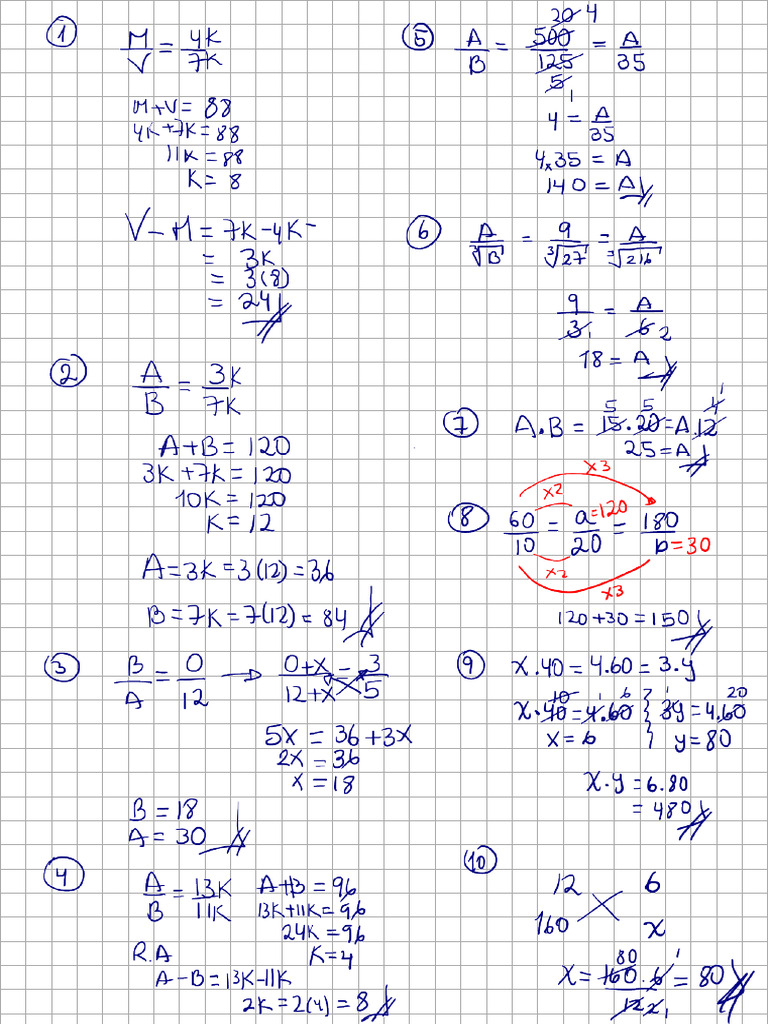 1
M/V = 4K/7K
M+V = 88
4K+7K = 88
11K = 88
K = 8
V-M = 7K-4K
= 3K
= 3(8)
= 24
2
A/B = 3K/7K
A+B = 120
3K+7K = 120
10K = 120
K = 12
A = 3K = 3(12) = 36
B = 7K = 7(12) = 84
3
B/A = 0/12 → 0+x/12+x = 3/5
5x = 36+3x
2x = 36
x = 18
B = 18
A = 30
4
A/B = 13K/11K
A+B = 96
13K+11K = 96
24K = 96
K = 4
R.A
A-B = 13K-11K
2K = 2(4) = 8
5
20 4
A/B = 500/125 = A/35
5
1
4 = A/35
4x35 = A
140 = A
6
A/∛B = 9/∛27 = A/∛216
9/3 = A/6
1 2
18 = A
7
5 5 4 1
A.B = 15.20 = A.12
25 = A
8
x3
x2
60/10 = a/20 = 180/b
=120
=30
x2
x3
120+30 = 150
9
x.40 = 4.60 = 3.y
10 1 6
x.40 = 4.60
x = 6
1 20
3y = 4.60
y = 80
x.y = 6.80
= 480
10
12 6
160 x
80 1
x = 160.6/12 = 80
2 1